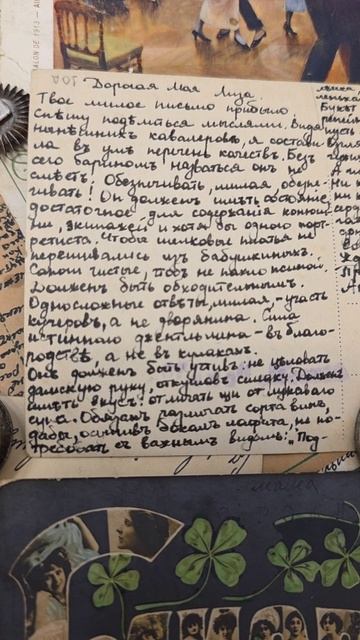 SALON DE 1913
Дорогая Моя Лиза.
Твое милое письмо прибыло
спѣшу подѣлиться мыслями. Видя
нынѣшнихъ кавалеровъ, я состави-
ла въ умѣ перечень качествъ. Безъ
сего бариномъ назваться онъ не
смѣетъ! Обезпечивать, милая, обезпе-
чивать! Онъ долженъ имѣть состояніе,
достаточное для содержанія конюш-
ни, экипажей и хотя бы одного порт-
ретиста. Чтобы шелковые платья не
перешивались изъ бабушкиныхъ.
Сапоги чистые, чтобъ не пахло псиной.
Долженъ быть обходительнымъ.
Односложные отвѣты, милая, - участь
кучеровъ, а не дворянина. Сила
истиннаго джентльмена - въ благо-
родствѣ, а не въ кулакахъ.
Онъ долженъ быть учтивъ: не цѣловать
дамскую руку, откушавъ селедку. Долженъ
имѣть вкусъ: отличать щи от лукаваго
супа. Обязанъ различать сорта винъ,
дабы, осушивъ бокалъ лафита, не по-
требовать съ важнымъ видомъ: „Под-